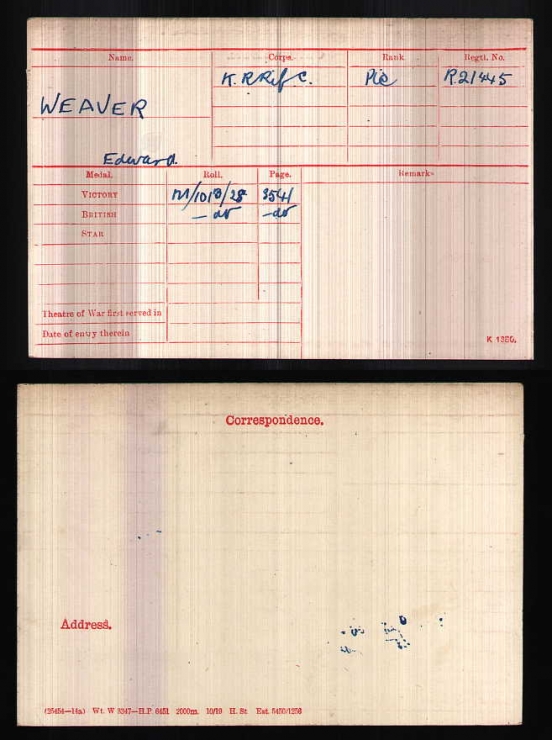 Name. Corps. Rank. Regtl. No.
K. R. Rif. C. Pte R.21445
WEAVER
Edward.
Medal. Roll. Page. Remarks
VICTORY 3541
BRITISH — do —do
STAR
Theatre of War first served in
Date of entry therein
K 1380.
Correspondence.
Address.
Wt. W 5347—H.P. 6451 2000m. 10/19 H. St Est.